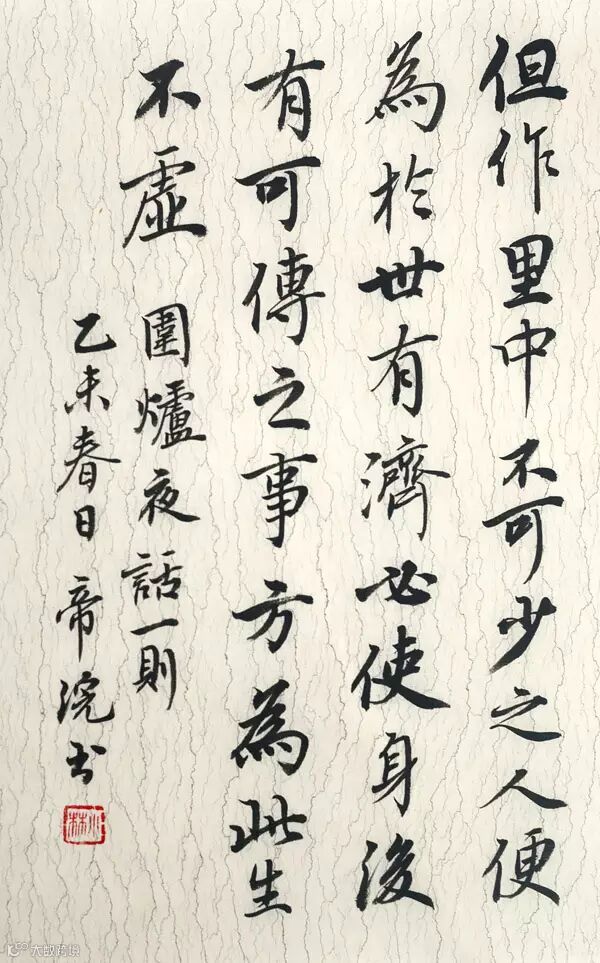 但作里中不可少之人便
為於世有濟必使身後
有可傳之事方為此生
不虛 圍爐夜話一則
乙未春日 帝浣书
大数跨境